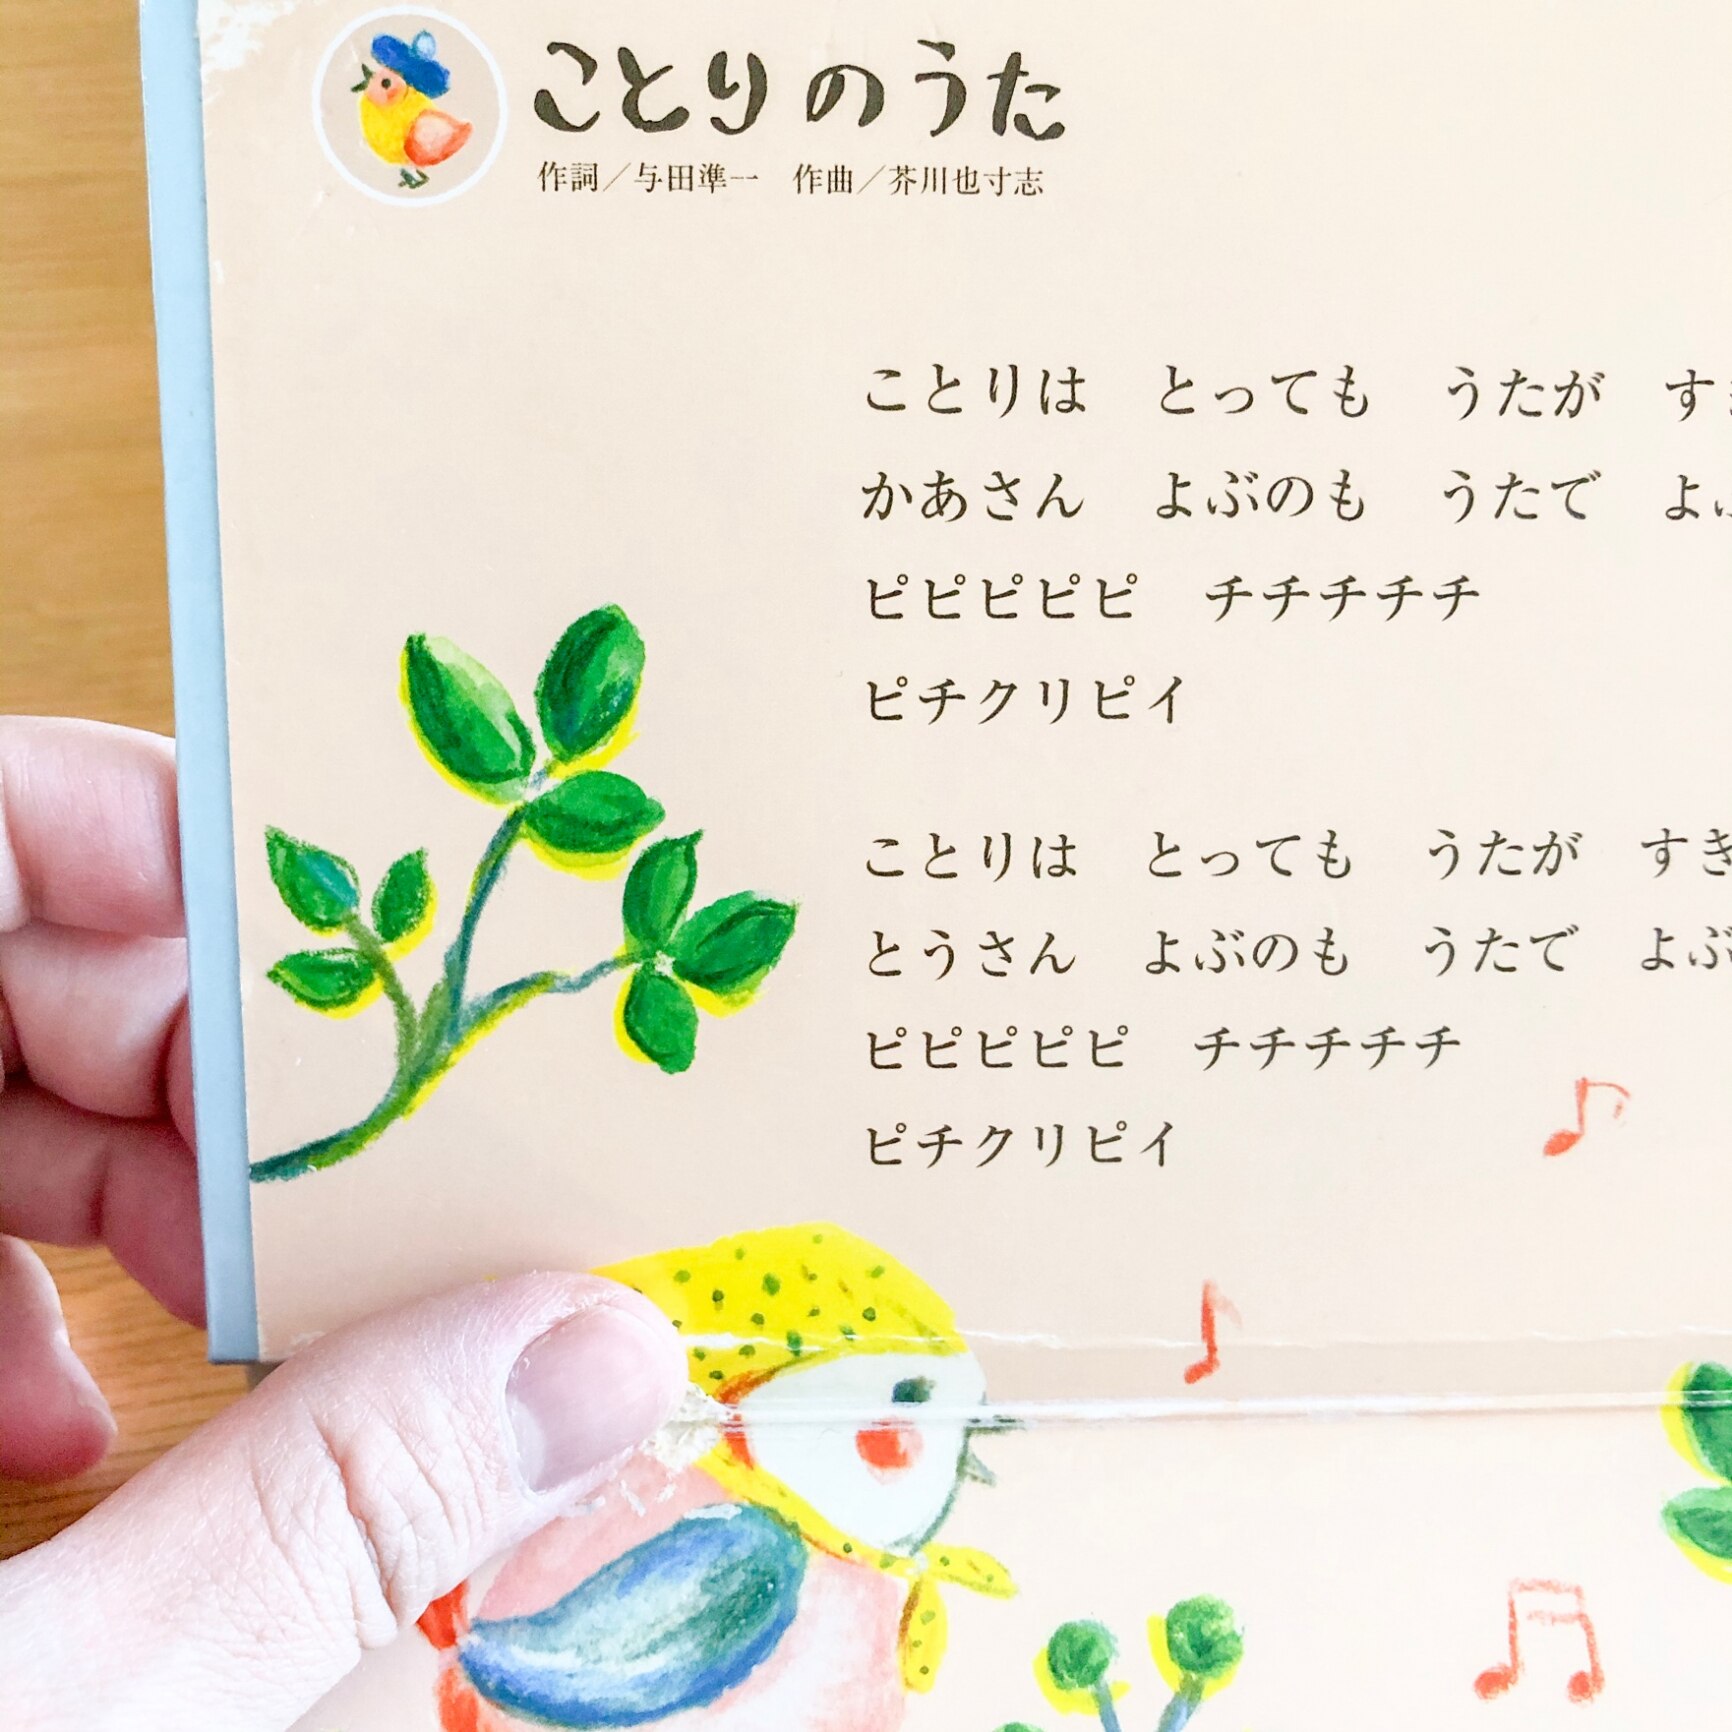 ことりのうた
作詞／与田準一　作曲／芥川也寸志
ことりは　とっても　うたが　す
かあさん　よぶのも　うたで　よ
ピピピピピ　チチチチチ
ピチクリピイ
ことりは　とっても　うたが　すき
とうさん　よぶのも　うたで　よぶ
ピピピピピ　チチチチチ
ピチクリピイ